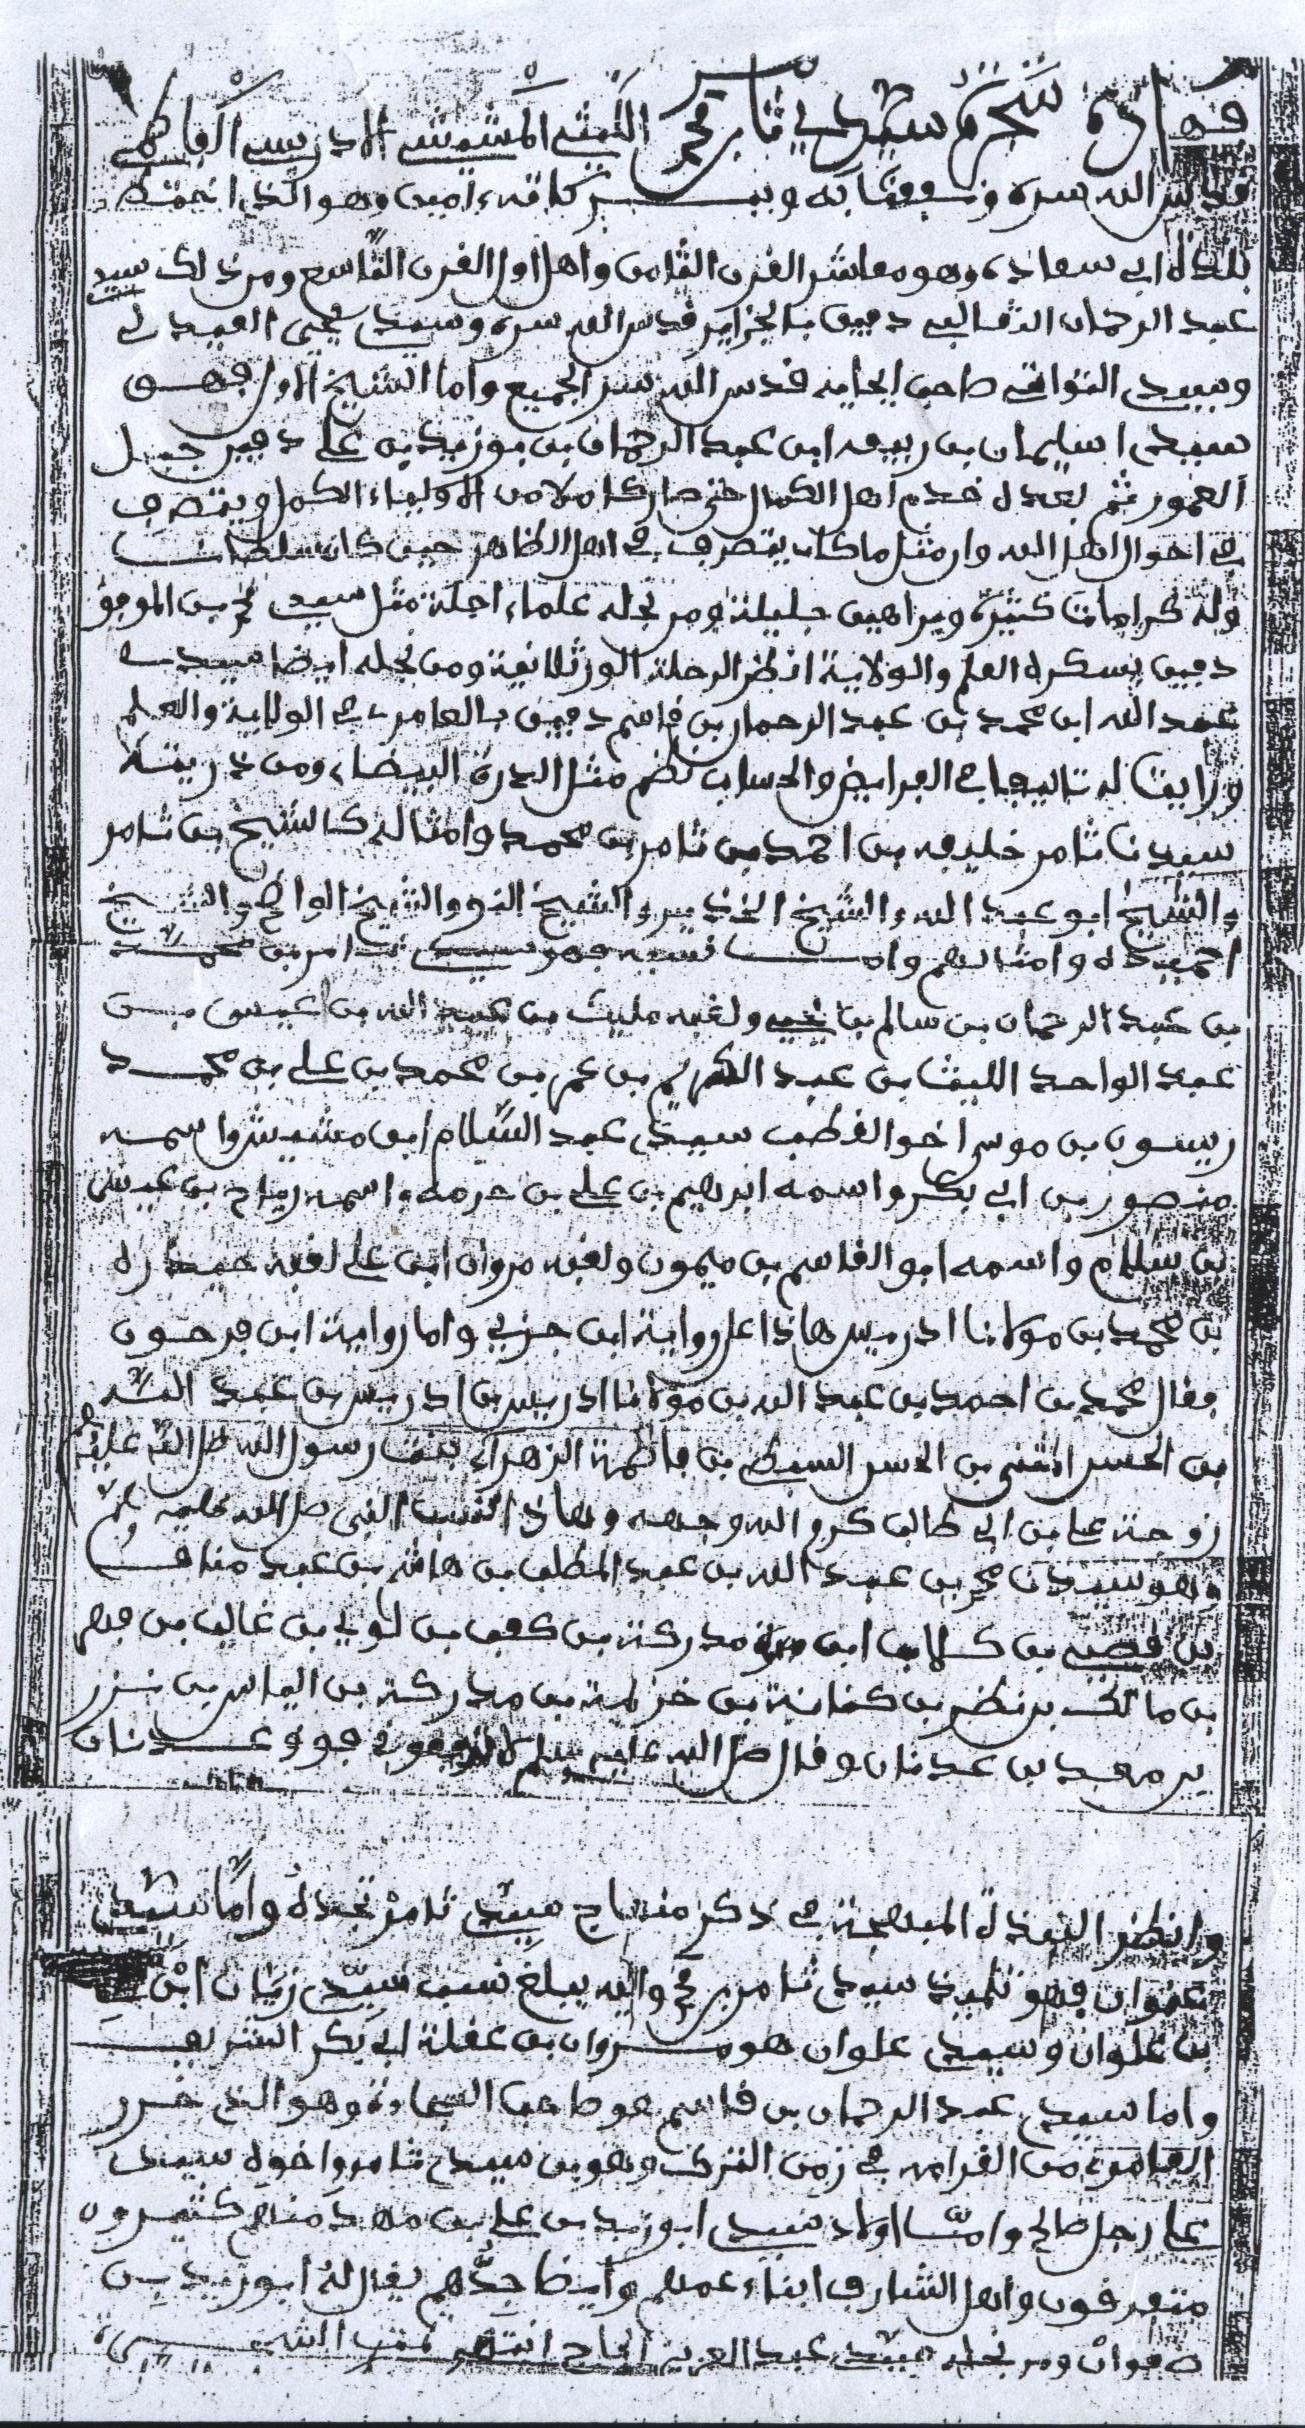 هذه شجرة سيدي ثامر بن محمد المشيشي الادريسي الفاطمي
قدس الله سره ونفعنا به وببركاته ءامين وهو الذي اختط
بلدة ابي سعادة وهو معاشر القرن الثامن واهل اول القرن التاسع ومن ذلك سيد
عبد الرحمان الثعالبي دفين بالجزاير قدس الله سره وسيدي يحيى العيدلي
وسيدي التواتي صاحب ابجاية قدس الله سر الجميع واما الشيخ الاول فهو
سيدي اسليمان بن ربيعه ابن عبد الرحمان بن بوزيد بن علي دفين جبل
العمور ثم بعده خدم اهل الكمال حتى صار كاملا من الاولياء الكمل ويتصرف
في احوال اهل الله مثل ما كان يتصرف في اهل الظاهر حين كان سلطان
وله كرامات كثيرة وبراهين جليلة ومن نجله علماء اجلة مثل سيدي محمد بن الموهوب
دفين بسكرة العلم والولاية انظر الرحلة الورثلانية ومن نجله ايضا سيدي
عبد الله ابن محمد بن عبد الرحمان بن قاسم دفين بالعامرى في الولاية والعلم
ورايت له تاليفا في الفرايض والحساب نظم مثل الدرة البيضاء ومن ذريته
سيدنا ثامر خليفه بن احمد بن ثامر بن محمد وامثاله كالشيخ بن ثامر
والشيخ ابو عبد الله والشيخ الخذير والشيخ النوو والشيخ الواضح والشيخ
احميده وامثالهم واما نسبه فهو سيدي ثامر بن محمد
بن عبد الرحمان بن سالم بن يحيى ولقبه مليث بن عبد الله بن اعيسى بن
عبد الواحد الليث بن عبد الكريم بن عمر بن محمد بن علي بن محمد
ريسون بن موسى اخو القطب سيدي عبد السلام ابن مشيش واسمه
منصور بن ابي بكر واسمه ابرهيم بن علي بن حرمه واسمه رياح بن عيسى
بن سلام واسمه ابو القاسم بن ميمون ولقبه مروان ابن علي لقبه حيدره
بن محمد بن مولانا ادريس هاذا على رواية ابن جزي واما رواية ابن فرحون
فقال محمد بن احمد بن عبد الله بن مولانا ادريس بن ادريس بن عبد الله
بن الحسن المثنى بن الحسن السبط بن فاطمة الزهراء بنت رسول الله صلى الله عليه
زوجة علي بن ابي طالب كرم الله وجهه وهاذا النسب النبي صلى الله عليه وسلم
وهو سيدنا محمد بن عبد الله بن عبد المطلب بن هاشم بن عبد مناف
بن قصي بن كلاب ابن مرة مدركة بن كعب بن لوي بن غالب بن فهر
بن مالك بن نظر بن كنانة بن خزيمة بن مدركة بن الياس بن نزر
بن معد بن عدنان وقال صلى الله عليه وسلم لا ترفعوني فوق عدنان
وانظر النبذة المبهجة في ذكر منهاج سيدي ثامر تجده واما سيدي
علوان فهو تلميذ سيدي ثامر بن محمد واليه يبلغ نسب سيدي زيان ابن
بن علوان وسيدي علوان هو مروان بن عقلة ابي بكر الشريف
واما سيدي عبد الرحمان بن قاسم هو صاحب السجادة وهو الذي حرر
العامرى من الغرامه في زمن الترك وهو بن سيدي ثامر واخوه سيدي
علي رجل صالح وامّا اولاد سيدي ابوزيد بن علي بن مهد منهم كثيرون
متعرفون واهل الشارف ابناء عمهم وايضا جدهم يقال له ابوزيد بن
صفوان ومن نجله سيدي عبد العزيز الحاج انتهى